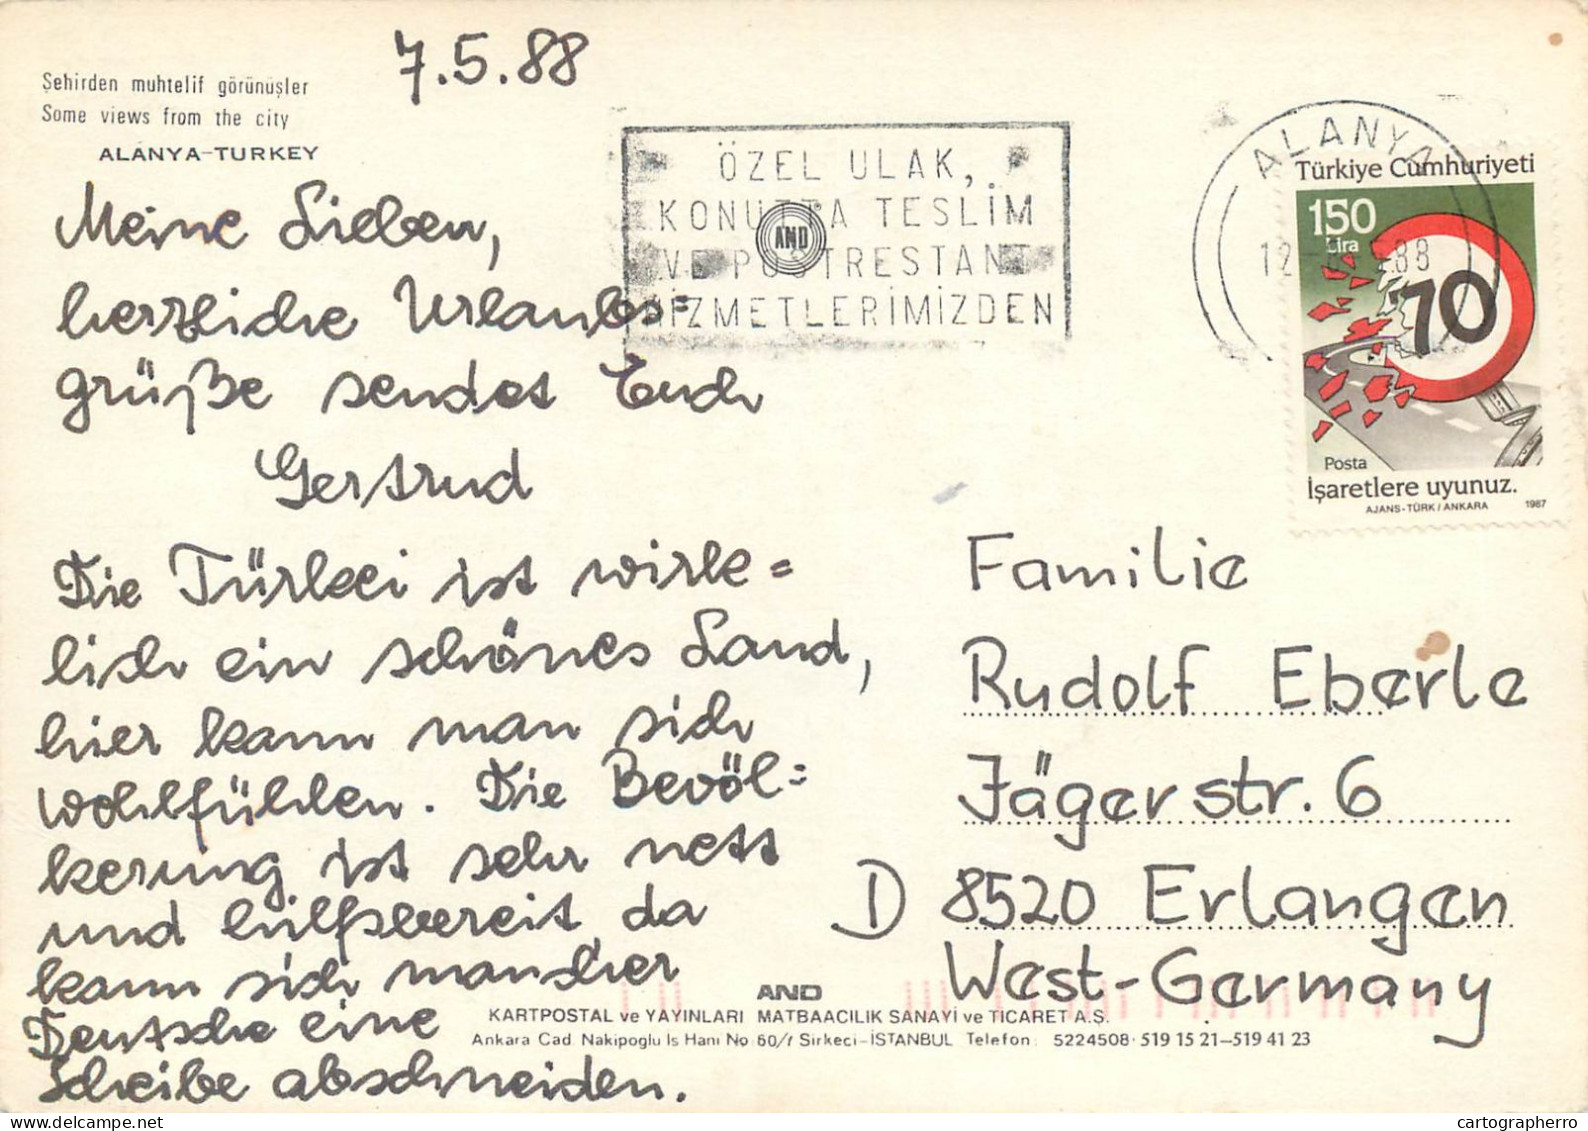 7.5.88
Şehirden muhtelif görünüşler
Some views from the city
ALANYA-TURKEY
ÖZEL ULAK,
KONUTTA TESLİM
VE POSTRESTANT
HİZMETLERİMİZDEN
AND
ALANYA
12
88
Türkiye Cumhuriyeti
150
Lira
70
Posta
İşaretlere uyunuz.
AJANS-TÜRK / ANKARA 1987
Meine Lieben,
herzliche Urlaubs=
grüße sendet Euch
Gertrud
Die Türkei ist wirk=
lich ein schönes Land,
hier kann man sich
wohlfühlen. Die Bevöl=
kerung ist sehr nett
und hilfsbereit, da
kann sich mancher
Deutsche eine
Scheibe abschneiden.
Familie
Rudolf Eberle
Jägerstr. 6
D 8520 Erlangen
West-Germany
AND
KARTPOSTAL ve YAYINLARI MATBAACILIK SANAYİ ve TİCARET A.Ş.
Ankara Cad. Nakipoglu Is Hanı No: 60/1 Sirkeci-İSTANBUL Telefon: 5224508-519 15 21-519 41 23
cartographerro